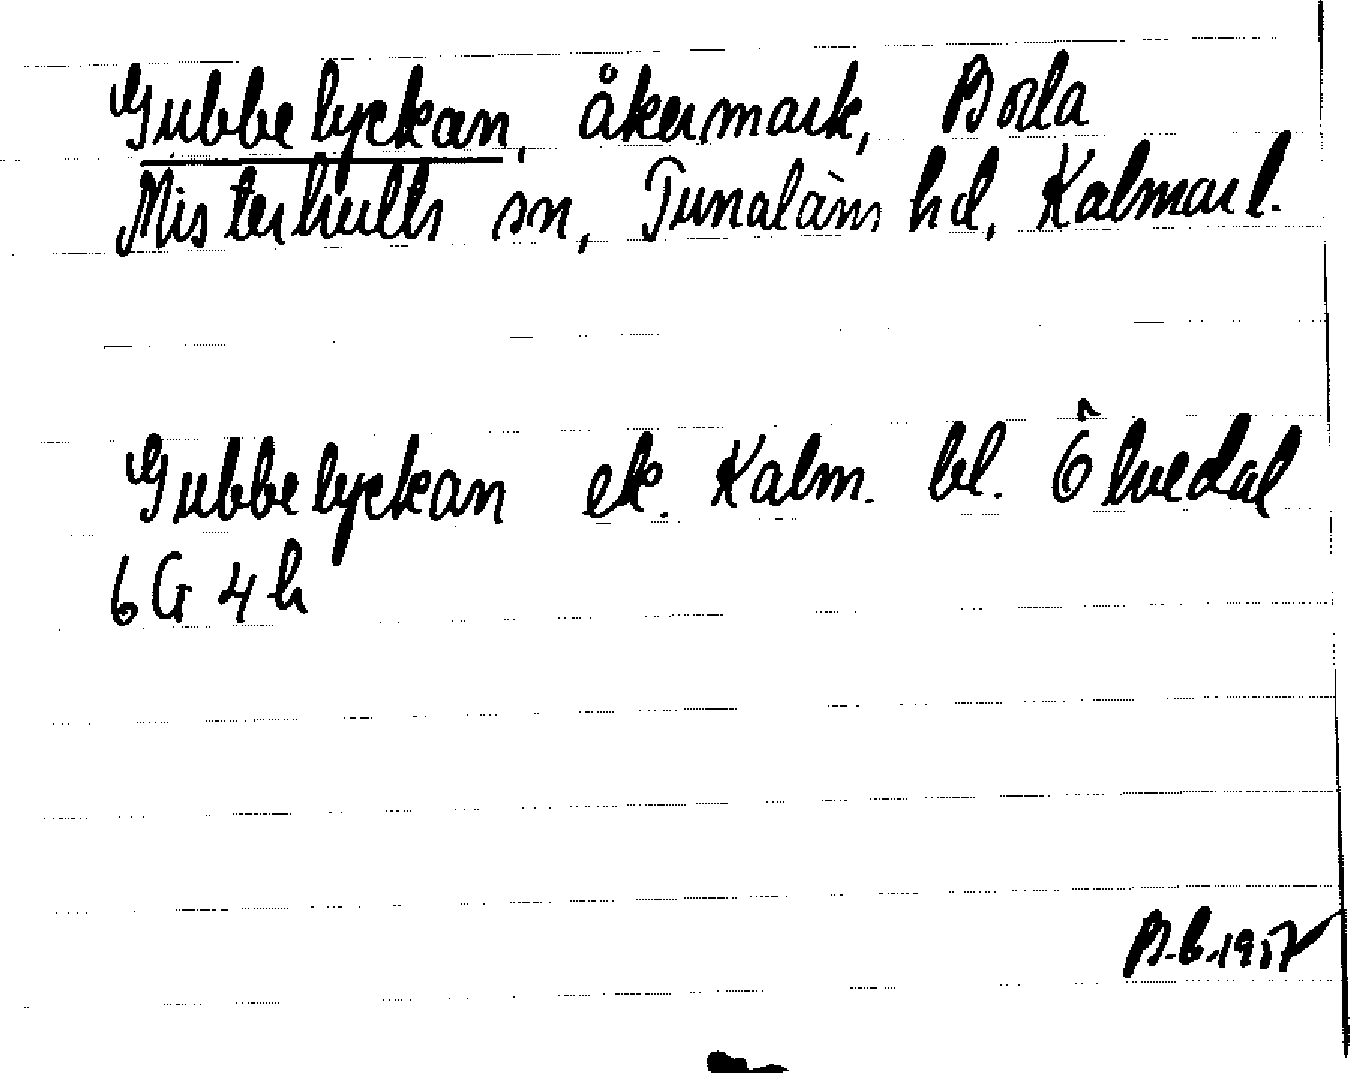 Gubbelyckan, åkermark, Borla
Misterhults sn, Tunaläns hd, Kalmar l.
Gubbelyckan ek. Kalm. bl. Ölvedal
6G 4h
B.L. 1957